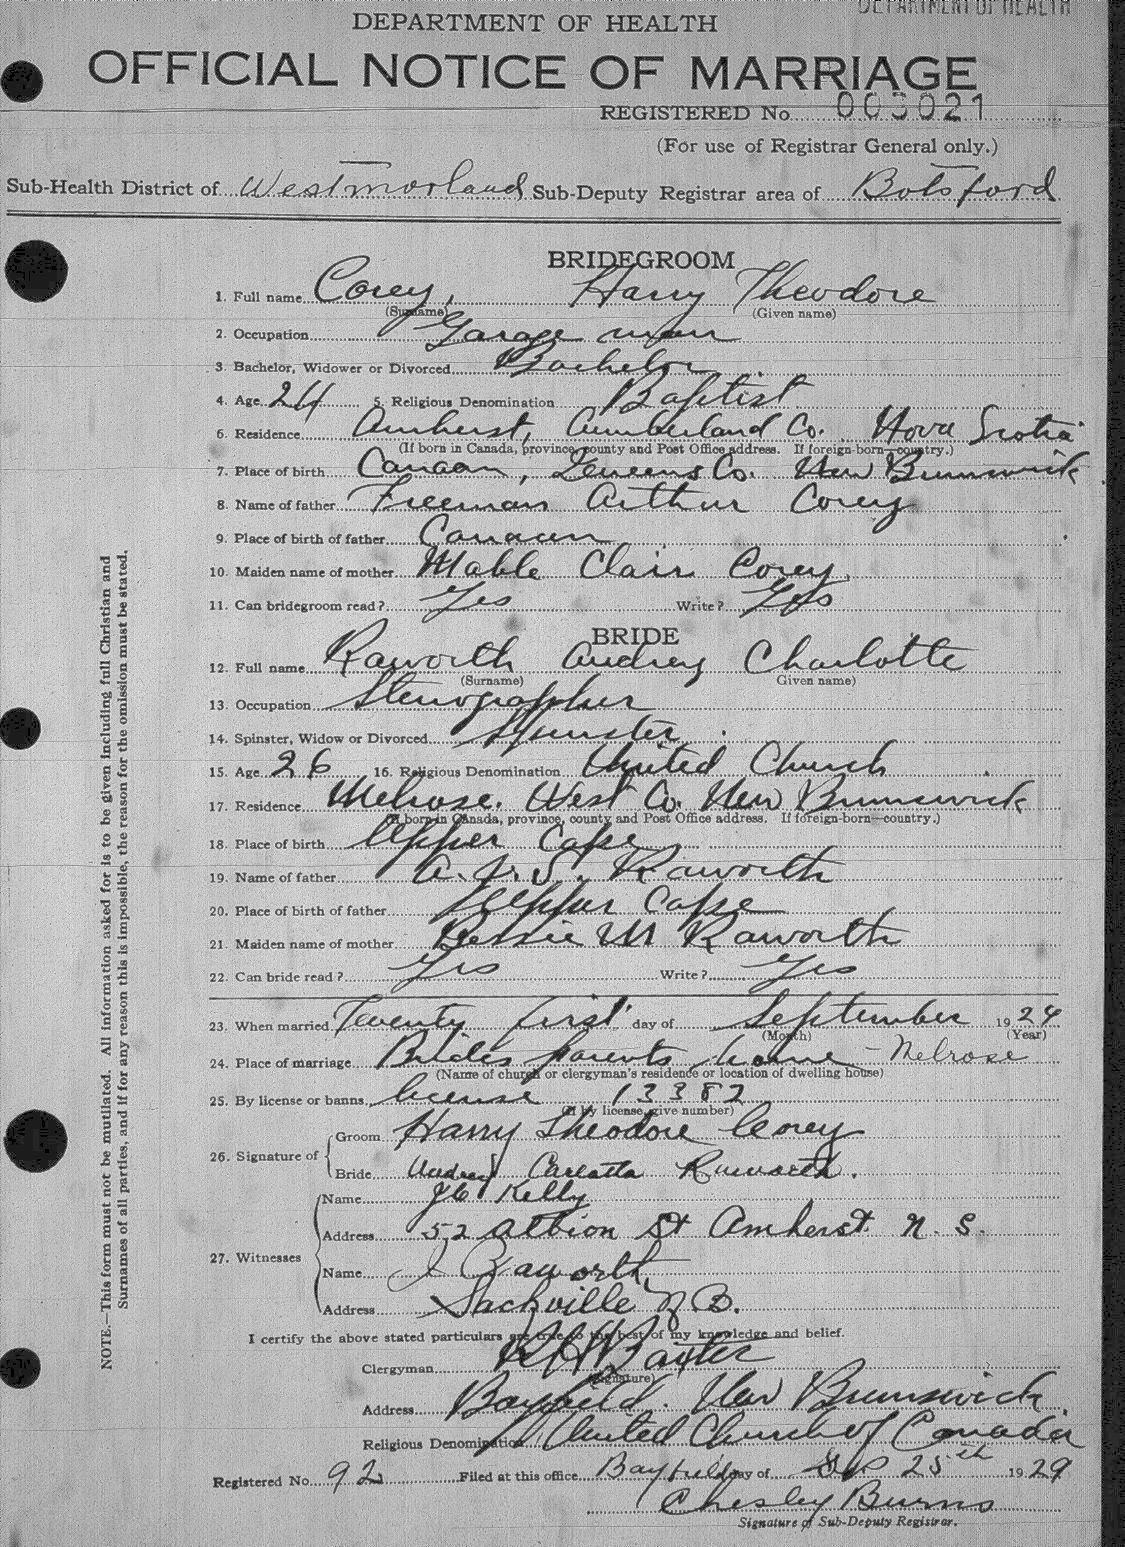 DEPARTMENT OF HEALTH
DEPARTMENT OF HEALTH
OFFICIAL NOTICE OF MARRIAGE
REGISTERED No. 003021
(For use of Registrar General only.)
Sub-Health District of Westmorland Sub-Deputy Registrar area of Botsford
BRIDEGROOM
1. Full name Corey, Harry Theodore
(Surname) (Given name)
2. Occupation Garage man
3. Bachelor, Widower or Divorced Bachelor
4. Age 24 5. Religious Denomination Baptist
6. Residence Amherst, Cumberland Co. Nova Scotia
(If born in Canada, province, county and Post Office address. If foreign-born—country.)
7. Place of birth Canaan, Queens Co. New Brunswick
8. Name of father Freeman Arthur Corey
9. Place of birth of father Canaan
10. Maiden name of mother Mable Clair Corey
11. Can bridegroom read? Yes Write? Yes
BRIDE
12. Full name Raworth Audrey Charlotte
(Surname) Given name)
13. Occupation Stenographer
14. Spinster, Widow or Divorced Spinster
15. Age 26 16. Religious Denomination United Church
17. Residence Melrose, West Co. New Brunswick
(If born in Canada, province, county and Post Office address. If foreign-born—country.)
18. Place of birth Upper Cape
19. Name of father A. Raworth
20. Place of birth of father Upper Cape
21. Maiden name of mother Bessie M Raworth
22. Can bride read? Yes Write? Yes
23. When married Twenty first day of September 1929
(Month) (Year)
24. Place of marriage Brides parents home - Melrose
(Name of church or clergyman's residence or location of dwelling house)
25. By license or banns license 13382
(If by license, give number)
26. Signature of
Groom Harry Theodore Corey
Bride Audrey Raworth.
27. Witnesses
Name Kelly
Address 52 Albion St Amherst N. S.
Name J Raworth
Address Sackville N B.
I certify the above stated particulars are true to the best of my knowledge and belief.
Clergyman R H Baxter
(Signature)
Address Bayfield. New Brunswick
Religious Denomination United Church of Canada
Registered No. 92 Filed at this office Bayfield day of Sep 25th 1929
Chesley Burns
Signature of Sub-Deputy Registrar.
NOTE.—This form must not be mutilated. All information asked for is to be given including full Christian and
Surnames of all parties, and if for any reason this is impossible, the reason for the omission must be stated.